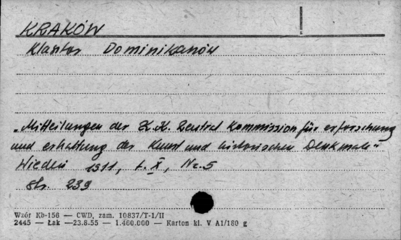 KRAKÓW
Klasztor Dominikanów
"Mitteilungen der K.K. Zentral Kommission für erforschung
und erhaltung der Kunst und historischen Denkmale"
Wiedeń 1911, t. X, Nr. 5
str. 239
Wzór Kb-156 — CWD, zam. 10837/T-I/II
2445 — Łak — 23.8.55 — 1.400.000 — Karton kl. V A1/180 g